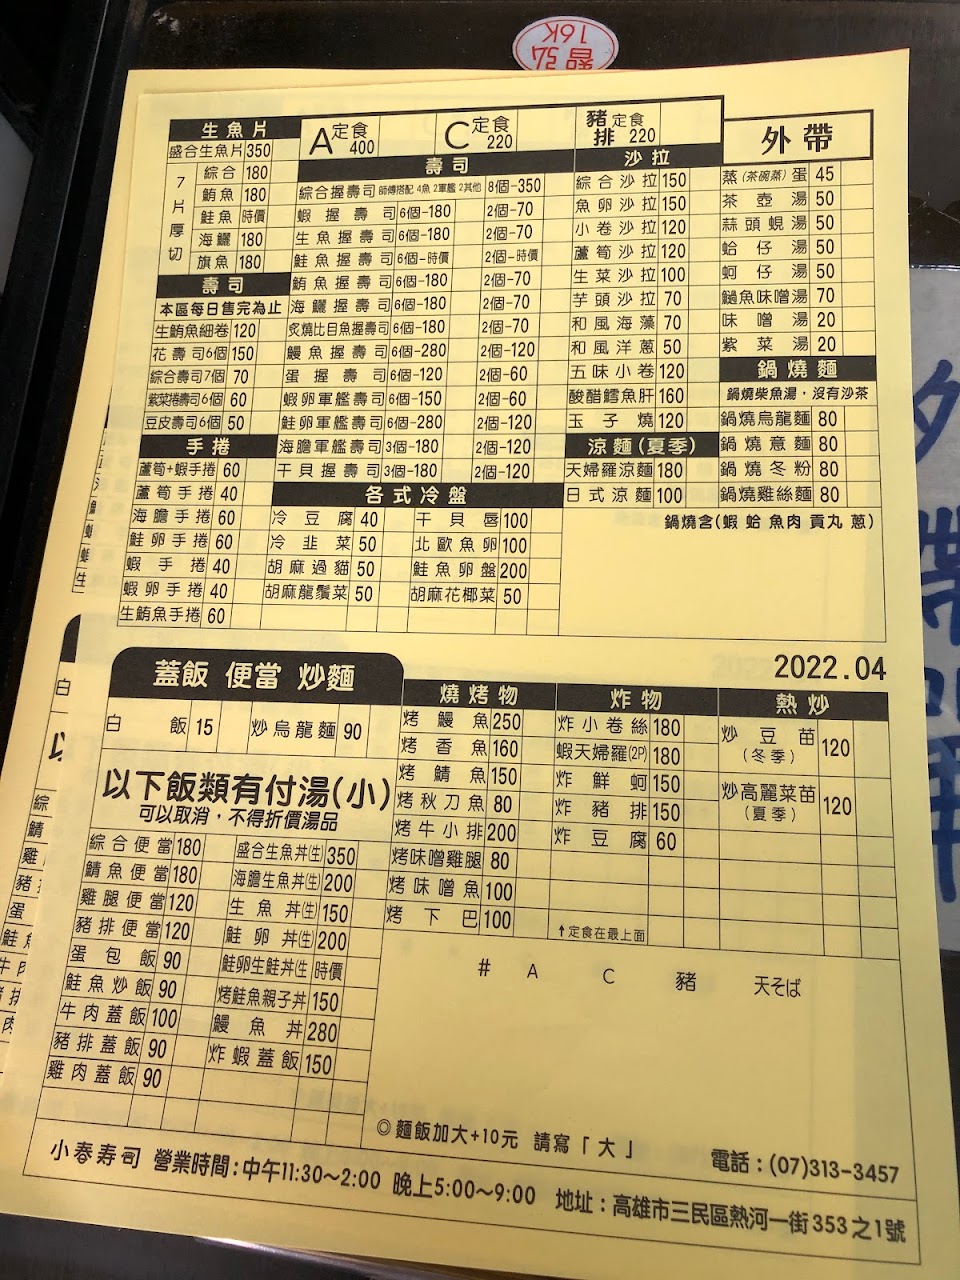 智弘
16K
生魚片
盛合生魚片 350
7片厚切
綜合 180
鮪魚 180
鮭魚 時價
海鱺 180
旗魚 180
壽司
本區每日售完為止
生鮪魚細卷 120
花壽司6個 150
綜合壽司7個 70
紫菜捲壽司6個 60
豆皮壽司6個 50
手捲
蘆筍+蝦手捲 60
蘆筍手捲 40
海膽手捲 60
鮭卵手捲 60
蝦手捲 40
蝦卵手捲 40
生鮪魚手捲 60
A定食 400
C定食 220
豬排定食 220
壽司
綜合握壽司 師傅搭配 4魚 2軍艦 2其他 8個-350
蝦握壽司 6個-180 2個-70
生魚握壽司 6個-180 2個-70
鮭魚握壽司 6個-時價 2個-時價
鮪魚握壽司 6個-180 2個-70
海鱺握壽司 6個-180 2個-70
炙燒比目魚握壽司 6個-180 2個-70
鰻魚握壽司 6個-280 2個-120
蛋握壽司 6個-120 2個-60
蝦卵軍艦壽司 6個-150 2個-60
鮭卵軍艦壽司 6個-280 2個-120
海膽軍艦壽司 3個-180 2個-120
干貝握壽司 3個-180 2個-120
各式冷盤
冷豆腐 40 干貝唇 100
冷韭菜 50 北歐魚卵 100
胡麻過貓 50 鮭魚卵盤 200
胡麻龍鬚菜 50 胡麻花椰菜 50
沙拉
綜合沙拉 150
魚卵沙拉 150
小卷沙拉 120
蘆筍沙拉 120
生菜沙拉 100
芋頭沙拉 70
和風海藻 70
和風洋蔥 50
五味小卷 120
酸醋鱈魚肝 160
玉子燒 120
涼麵(夏季)
天婦羅涼麵 180
日式涼麵 100
外帶
蒸(茶碗蒸)蛋 45
茶壺湯 50
蒜頭蜆湯 50
蛤仔湯 50
蚵仔湯 50
鮨魚味噌湯 70
味噌湯 20
紫菜湯 20
鍋燒麵
鍋燒柴魚湯，沒有沙茶
鍋燒烏龍麵 80
鍋燒意麵 80
鍋燒冬粉 80
鍋燒雞絲麵 80
鍋燒含(蝦 蛤 魚肉 貢丸 蔥)
2022.04
蓋飯 便當 炒麵
白飯 15 炒烏龍麵 90
以下飯類有付湯(小)
可以取消，不得折價湯品
綜合便當 180 盛合生魚丼(生) 350
鯖魚便當 180 海膽生魚丼(生) 200
雞腿便當 120 生魚丼(生) 150
豬排便當 120 鮭卵丼(生) 200
蛋包飯 90 鮭卵生鮭丼(生 時價
鮭魚炒飯 90 烤鮭魚親子丼 150
牛肉蓋飯 100 鰻魚丼 280
豬排蓋飯 90 炸蝦蓋飯 150
雞肉蓋飯 90
燒烤物
烤鰻魚 250
烤香魚 160
烤鯖魚 150
烤秋刀魚 80
烤牛小排 200
烤味噌雞腿 80
烤味噌魚 100
烤下巴 100
炸物
炸小卷絲 180
蝦天婦羅(2P) 180
炸鮮蚵 150
炸豬排 150
炸豆腐 60
↑定食在最上面
熱炒
炒豆苗(冬季) 120
炒高麗菜苗(夏季) 120
# A C 豬 天そば
◎麵飯加大+10元 請寫「大」
電話：(07)313-3457
小春寿司 營業時間：中午11:30～2:00 晚上5:00～9:00 地址：高雄市三民區熱河一街353之1號